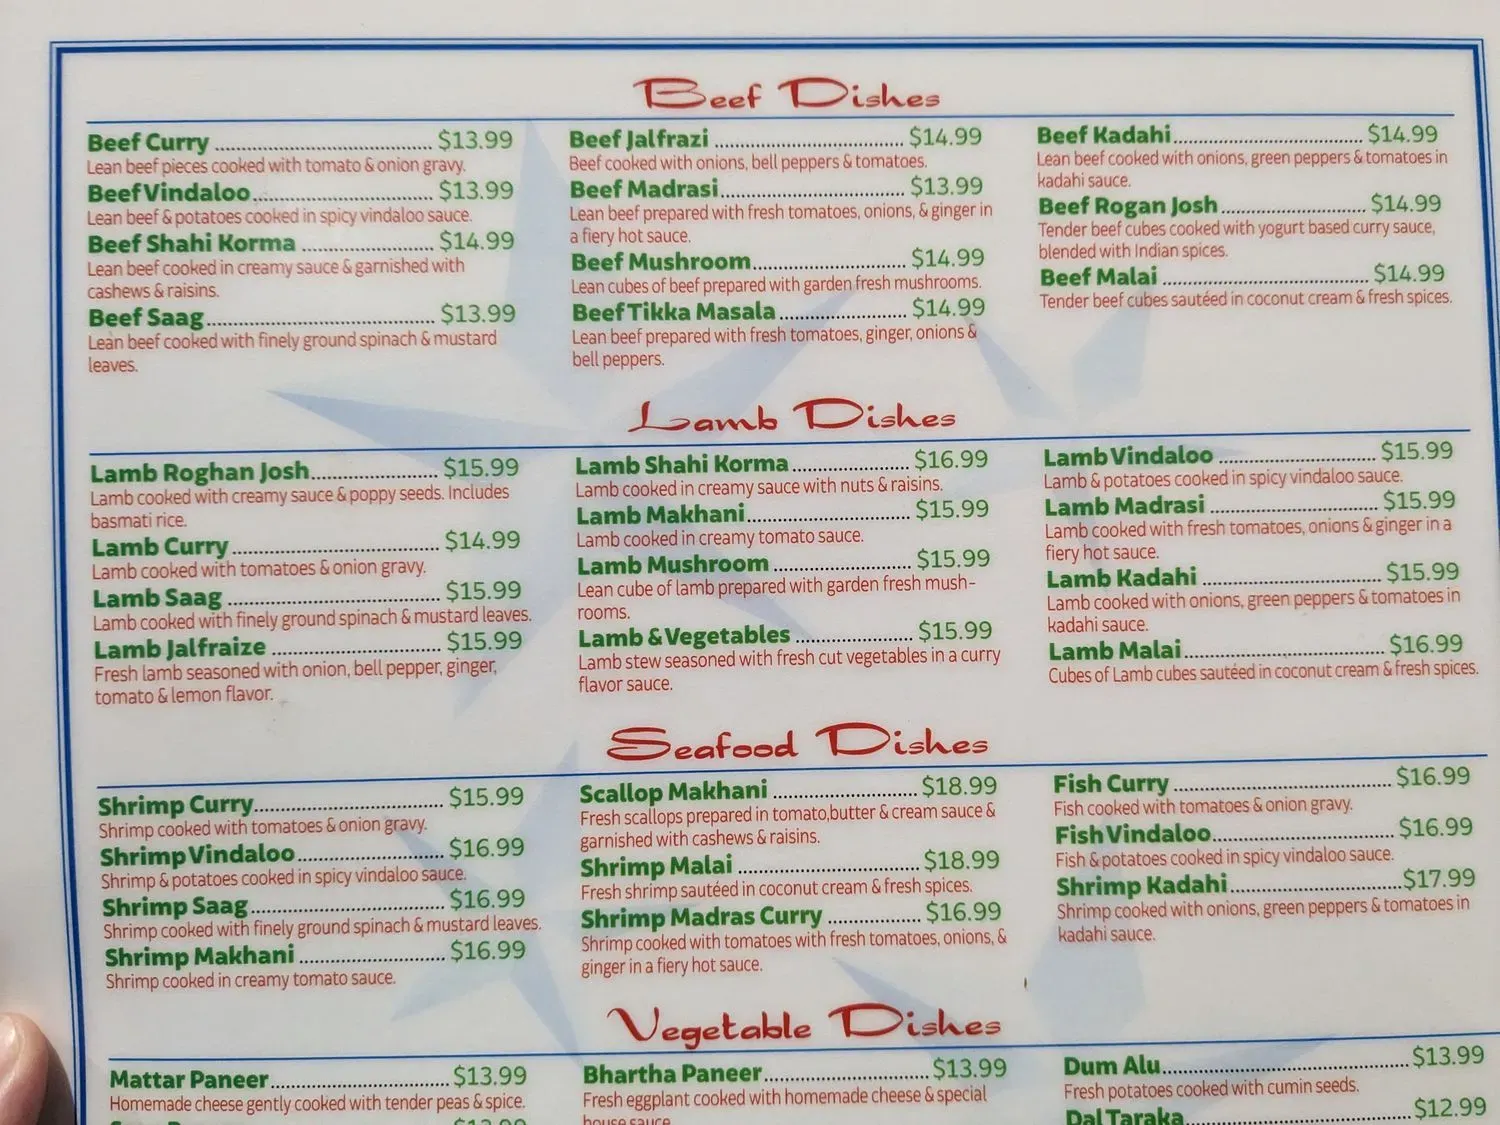 Beef Dishes
Beef Curry ........ $13.99
Lean beef pieces cooked with tomato & onion gravy.
Beef Vindaloo ........ $13.99
Lean beef & potatoes cooked in spicy vindaloo sauce.
Beef Shahi Korma ........ $14.99
Lean beef cooked in creamy sauce & garnished with
cashews & raisins.
Beef Saag ........ $13.99
Lean beef cooked with finely ground spinach & mustard
leaves.
Beef Jalfrazi ........ $14.99
Beef cooked with onions, bell peppers & tomatoes.
Beef Madrasi ........ $13.99
Lean beef prepared with fresh tomatoes, onions, & ginger in
a fiery hot sauce.
Beef Mushroom ........ $14.99
Lean cubes of beef prepared with garden fresh mushrooms.
Beef Tikka Masala ........ $14.99
Lean beef prepared with fresh tomatoes, ginger, onions &
bell peppers.
Beef Kadahi ........ $14.99
Lean beef cooked with onions, green peppers & tomatoes in
kadahi sauce.
Beef Rogan Josh ........ $14.99
Tender beef cubes cooked with yogurt based curry sauce,
blended with Indian spices.
Beef Malai ........ $14.99
Tender beef cubes sautéed in coconut cream & fresh spices.
Lamb Dishes
Lamb Roghan Josh ........ $15.99
Lamb cooked with creamy sauce & poppy seeds. Includes
basmati rice.
Lamb Curry ........ $14.99
Lamb cooked with tomatoes & onion gravy.
Lamb Saag ........ $15.99
Lamb cooked with finely ground spinach & mustard leaves.
Lamb Jalfraize ........ $15.99
Fresh lamb seasoned with onion, bell pepper, ginger,
tomato & lemon flavor.
Lamb Shahi Korma ........ $16.99
Lamb cooked in creamy sauce with nuts & raisins.
Lamb Makhani ........ $15.99
Lamb cooked in creamy tomato sauce.
Lamb Mushroom ........ $15.99
Lean cube of lamb prepared with garden fresh mush-
rooms.
Lamb & Vegetables ........ $15.99
Lamb stew seasoned with fresh cut vegetables in a curry
flavor sauce.
Lamb Vindaloo ........ $15.99
Lamb & potatoes cooked in spicy vindaloo sauce.
Lamb Madrasi ........ $15.99
Lamb cooked with fresh tomatoes, onions & ginger in a
fiery hot sauce.
Lamb Kadahi ........ $15.99
Lamb cooked with onions, green peppers & tomatoes in
kadahi sauce.
Lamb Malai ........ $16.99
Cubes of Lamb cubes sautéed in coconut cream & fresh spices.
Seafood Dishes
Shrimp Curry ........ $15.99
Shrimp cooked with tomatoes & onion gravy.
Shrimp Vindaloo ........ $16.99
Shrimp & potatoes cooked in spicy vindaloo sauce.
Shrimp Saag ........ $16.99
Shrimp cooked with finely ground spinach & mustard leaves.
Shrimp Makhani ........ $16.99
Shrimp cooked in creamy tomato sauce.
Scallop Makhani ........ $18.99
Fresh scallops prepared in tomato,butter & cream sauce &
garnished with cashews & raisins.
Shrimp Malai ........ $18.99
Fresh shrimp sautéed in coconut cream & fresh spices.
Shrimp Madras Curry ........ $16.99
Shrimp cooked with tomatoes with fresh tomatoes, onions, &
ginger in a fiery hot sauce.
Fish Curry ........ $16.99
Fish cooked with tomatoes & onion gravy.
Fish Vindaloo ........ $16.99
Fish & potatoes cooked in spicy vindaloo sauce.
Shrimp Kadahi ........ $17.99
Shrimp cooked with onions, green peppers & tomatoes in
kadahi sauce.
Vegetable Dishes
Mattar Paneer ........ $13.99
Homemade cheese gently cooked with tender peas & spice.
Bhartha Paneer ........ $13.99
Fresh eggplant cooked with homemade cheese & special
house sauce.
Dum Alu ........ $13.99
Fresh potatoes cooked with cumin seeds.
Dal Taraka ........ $12.99